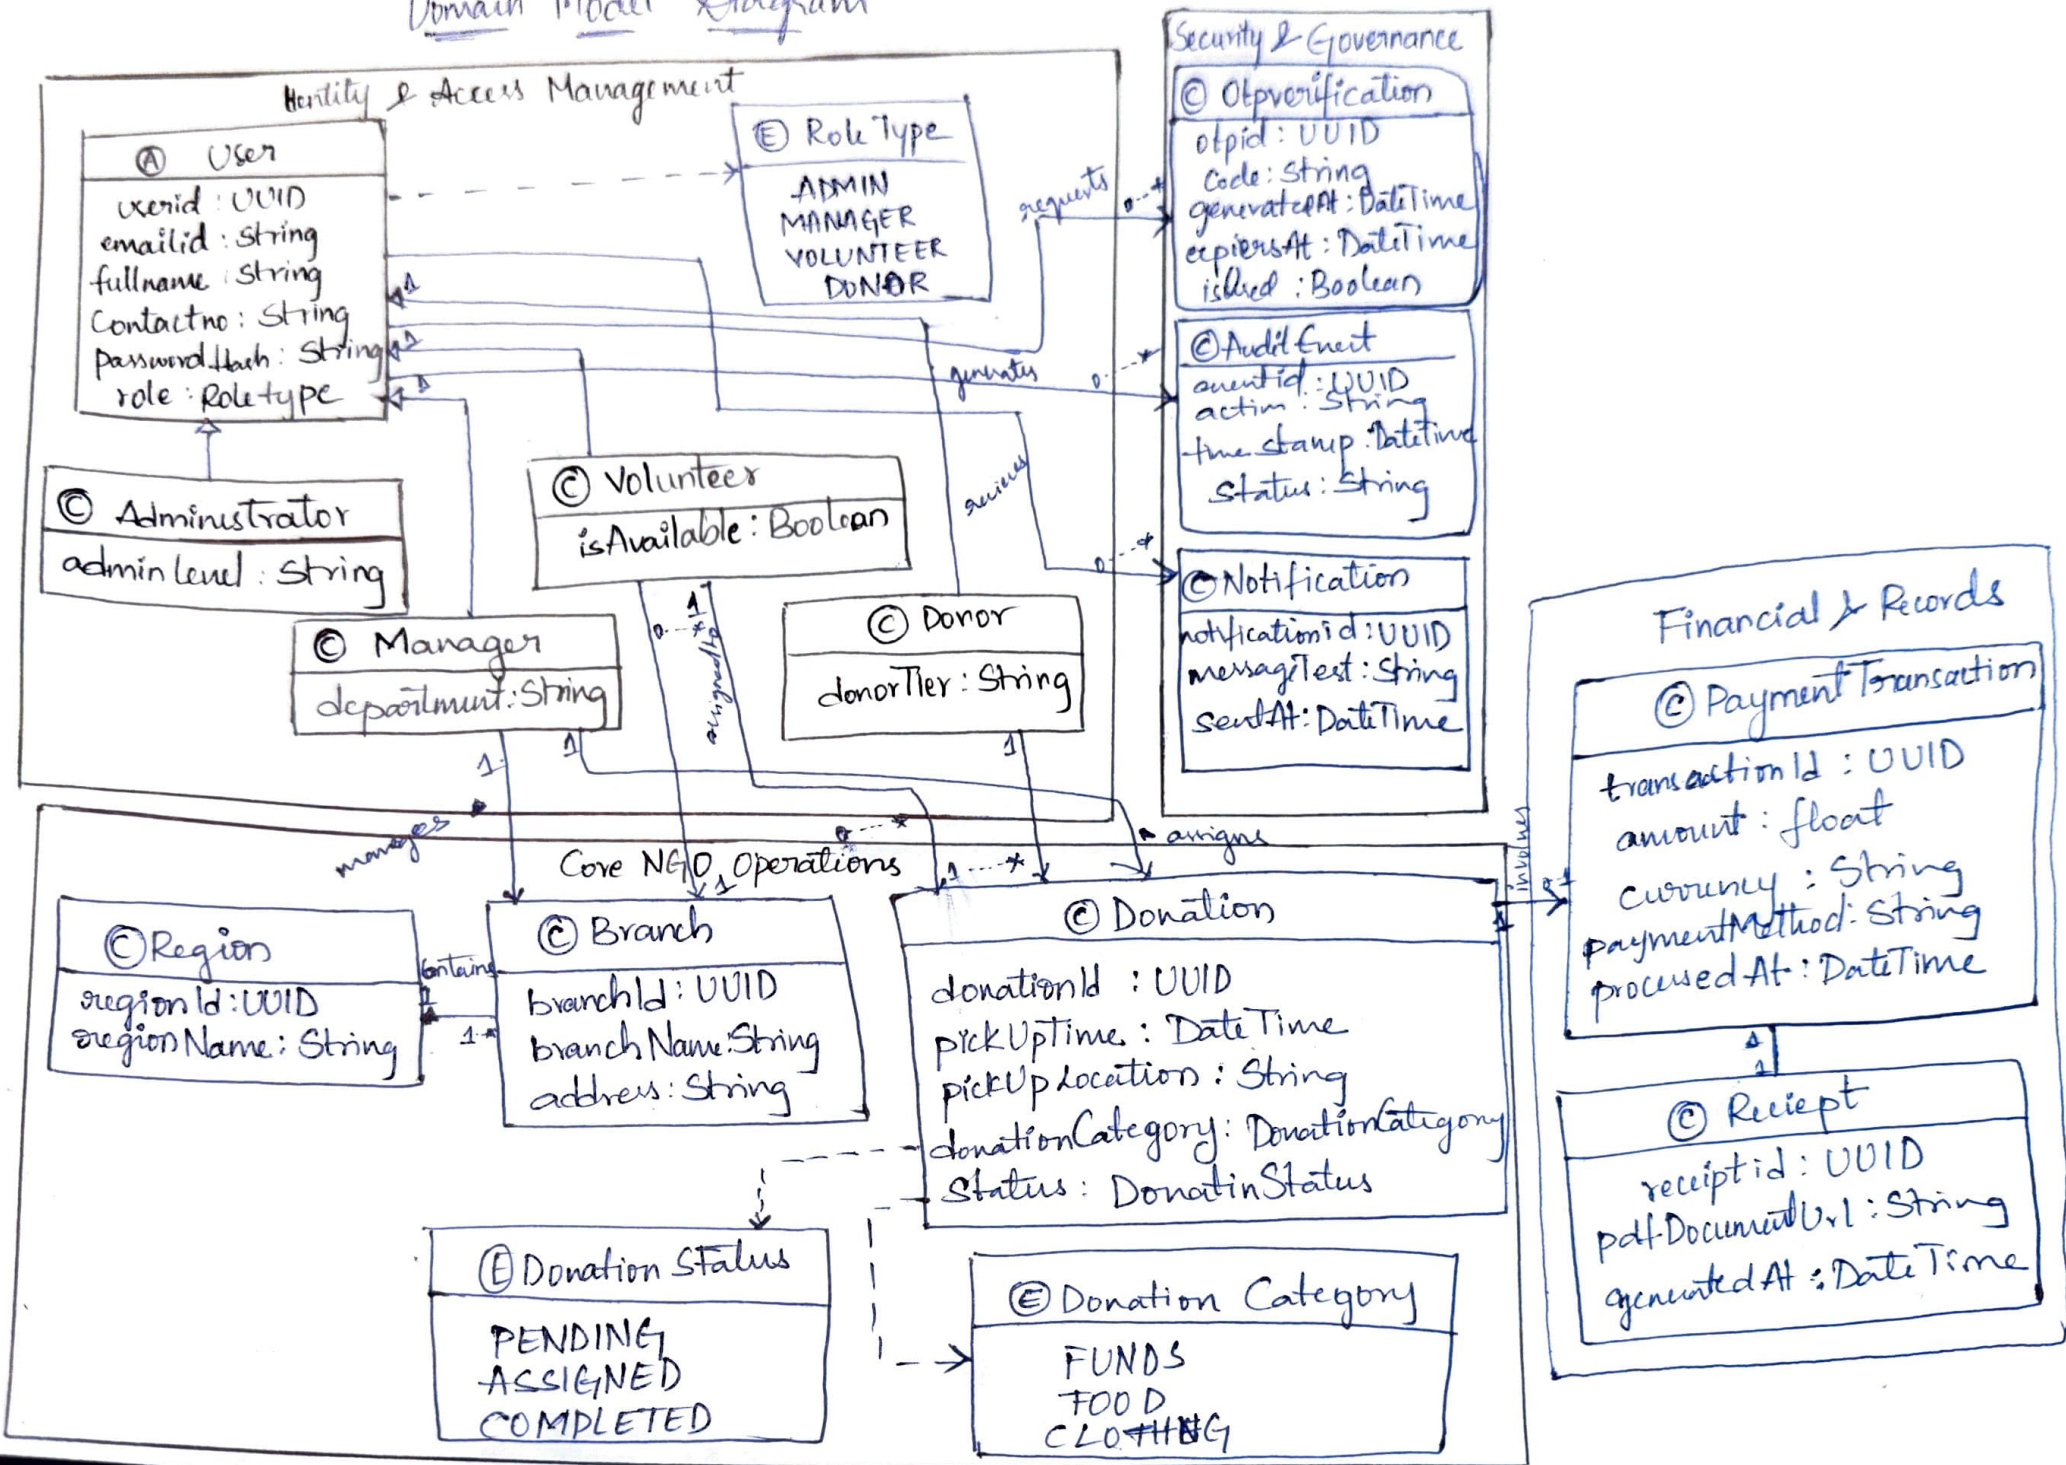 Domain Model Diagram
Identity & Access Management
Ⓐ User
userid : UUID
emailid : String
fullname : String
Contactno : String
passwordHash : String
role : Roletype
Ⓔ Role Type
ADMIN
MANAGER
VOLUNTEER
DONOR
requests
0..*
1
1
1
generates
0..*
receives
0..*
Ⓒ Administrator
adminLevel : String
Ⓒ Volunteer
isAvailable : Boolean
Ⓒ Manager
department : String
Ⓒ Donor
donorTier : String
1
0..*
1
1
1
manages
0..*
assigns
Security & Governance
Ⓒ Otpverification
otpid : UUID
Code : String
generatedAt : DateTime
expiersAt : DateTime
isUsed : Boolean
Ⓒ Audit Event
eventid : UUID
action : String
time stamp : DateTime
Status : String
Ⓒ Notification
notificationid : UUID
messageText : String
sentAt : DateTime
Core NGO Operations
1
1...*
Ⓒ Region
regionId : UUID
regionName : String
Contains
1
1..*
Ⓒ Branch
branchId : UUID
branchName : String
address : String
Ⓒ Donation
donationId : UUID
pickUpTime : DateTime
pickUpLocation : String
donationCategory : DonationCategory
Status : DonatinStatus
Ⓔ Donation Status
PENDING
ASSIGNED
COMPLETED
Ⓔ Donation Category
FUNDS
FOOD
CLOTHING
involves
1
Financial & Records
Ⓒ PaymentTransaction
transactionId : UUID
amount : float
currency : String
paymentMethod : String
processedAt : DateTime
1
1
Ⓒ Reciept
receiptid : UUID
pdfDocumentUrl : String
generatedAt : DateTime